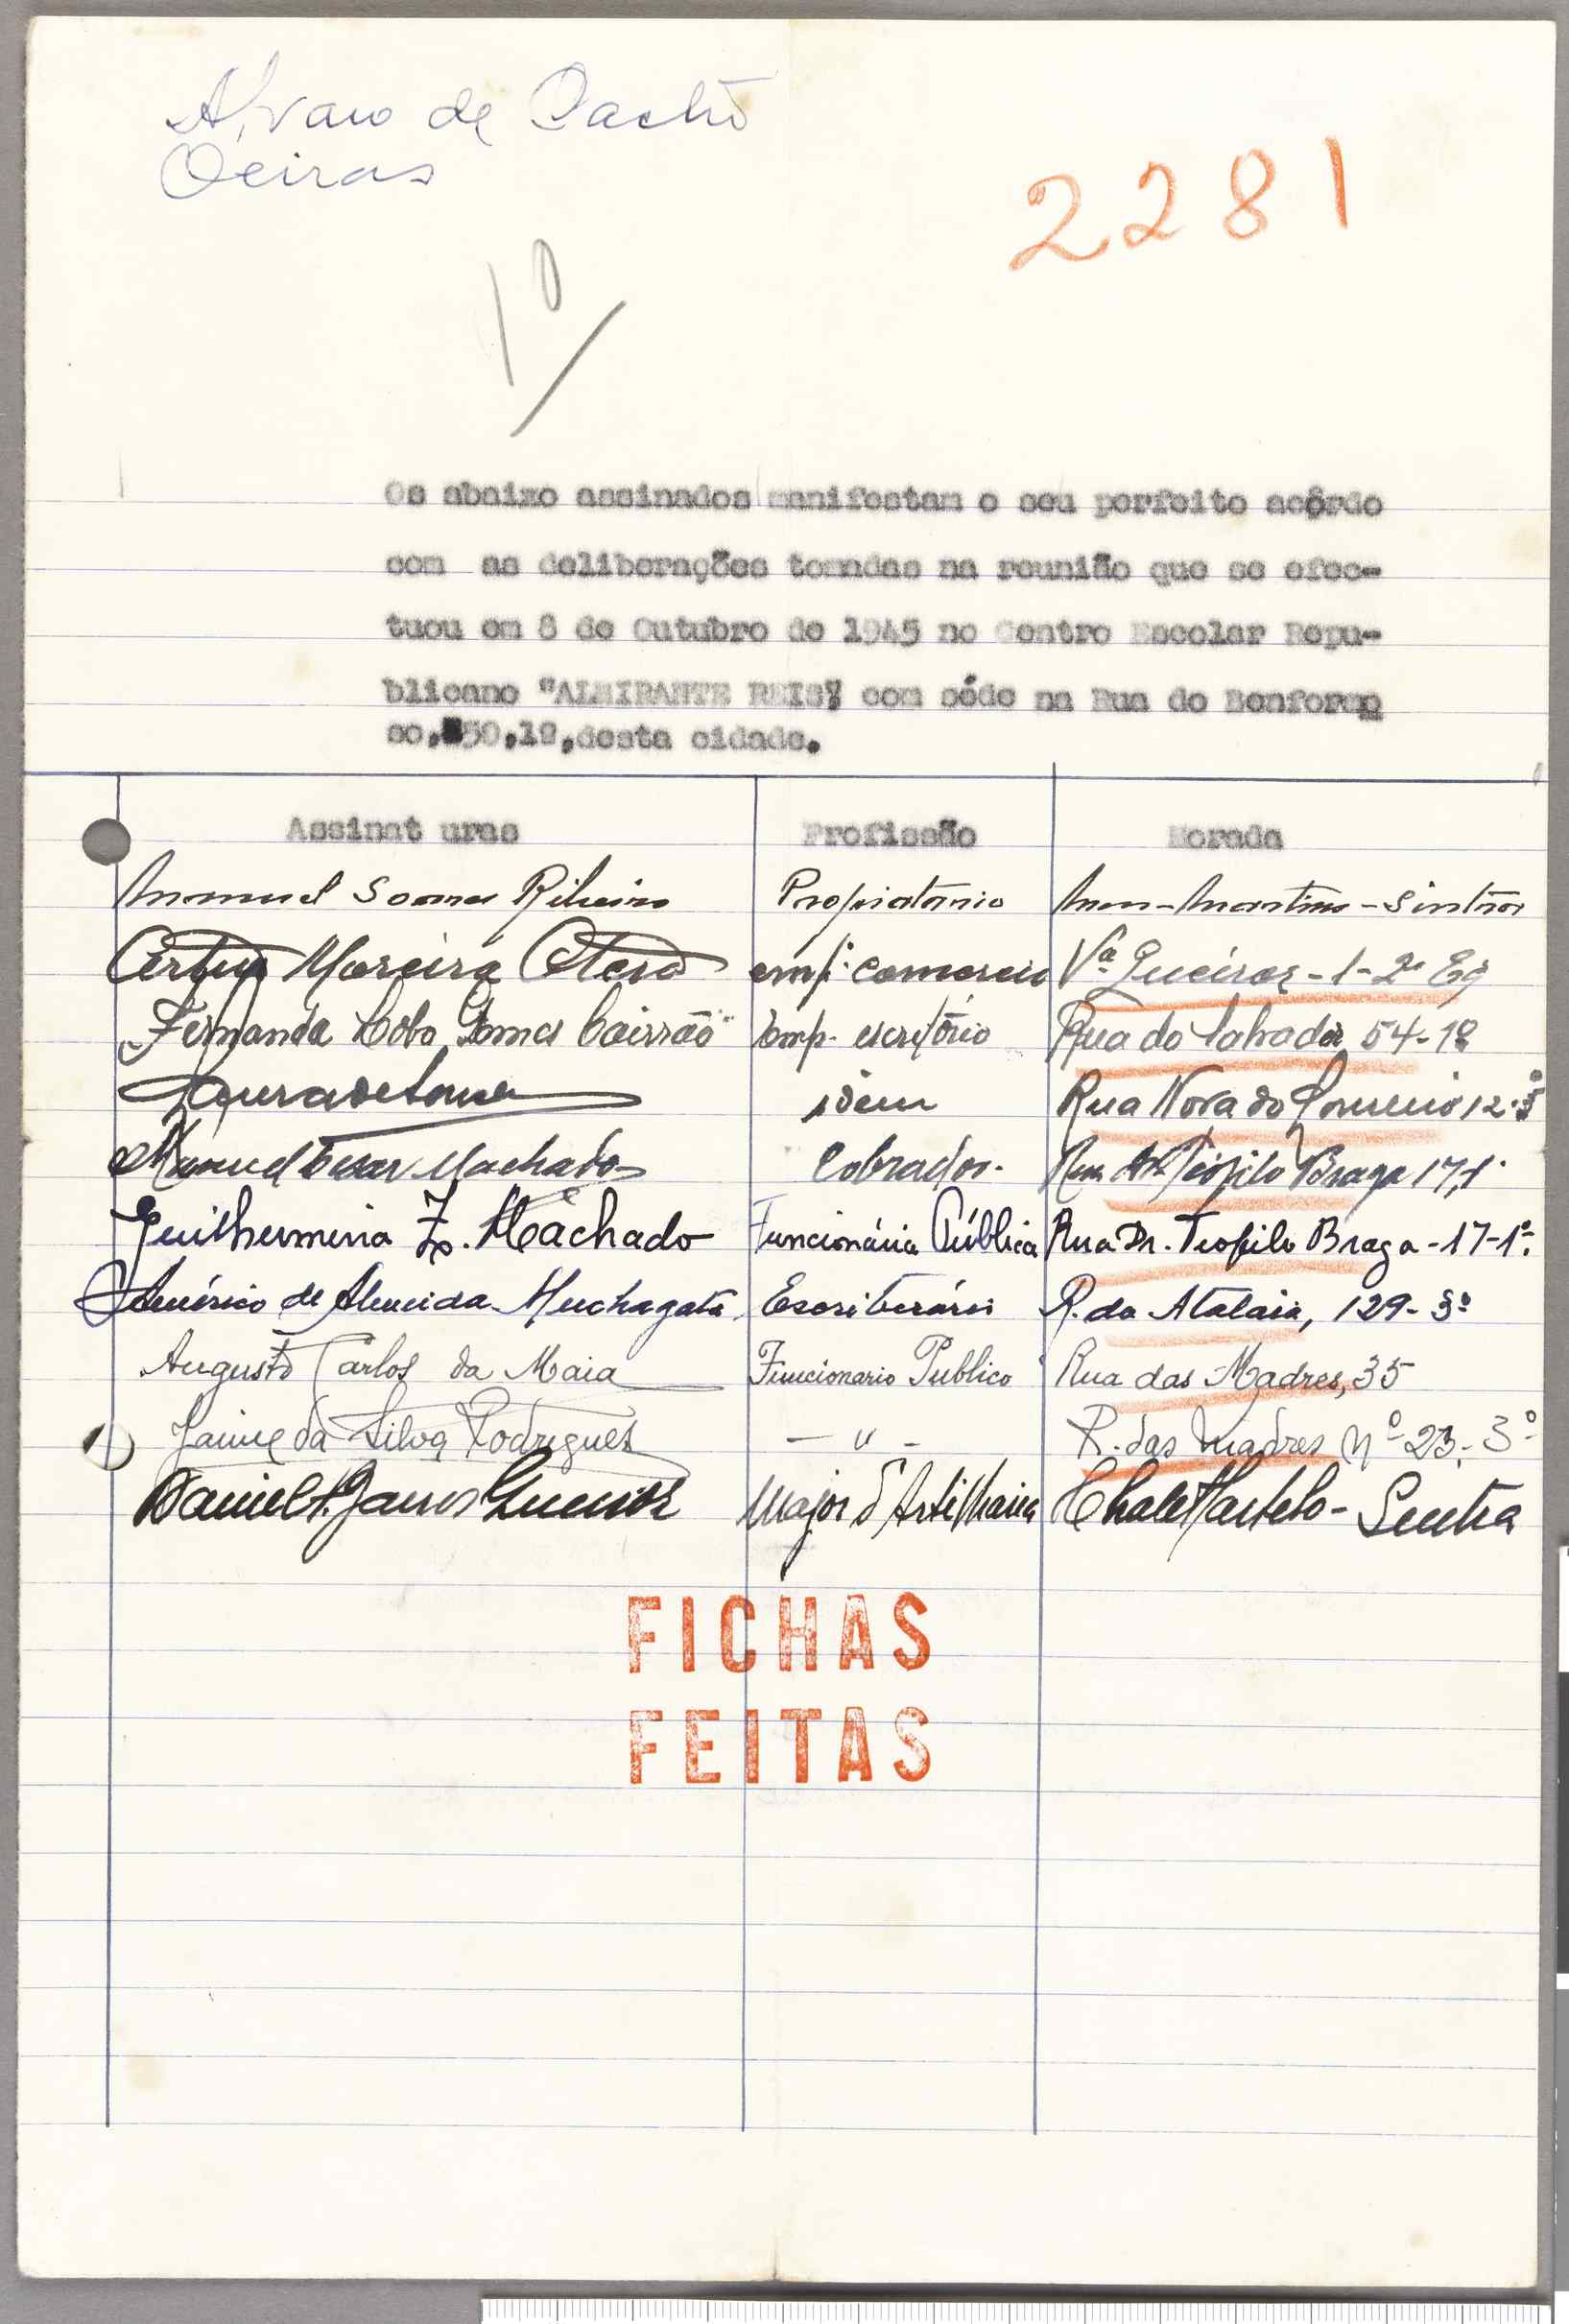 Alvaro de
Oeiras
2281
10
Os abaixo assinados manifestam o seu perfeito acôrdo
com as deliberações tomadas na reunião que se efec-
tuou em 8 de Outubro de 1945 no Centro Escolar Repu-
blicano "ALMIRANTE REIS" com séde na Rua do Benformo
so, 50,1º,desta cidade.
Assinat uras Profissão Morada
Manuel Soares Ribeiro Propriatário Mem-Martins-Sintra
Artur Moreira Otero emp. comercio Vª Queiroz-1-2º Eq
Fernanda Lobo Gomes Cairrão Emp. escritório Rua do Salvador 54-1º
Laura de Sousa idem Rua Nova do Loureiro 12-3º
Manuel Cesar Machado Cobrador. Rua Dr. Teófilo Braga 17,1º
Guilhermina Z. Machado Funcionária Pública Rua Dr. Teofilo Braga-17-1º.
Américo de Almeida Muchagata Escriturário R. da Atalaia, 129-3º
Augusto Carlos da Maia Funcionario Publico Rua das Madres, 35
Jaime da Silva Rodrigues — " - R. das Madres nº 23-3º
Daniel Major d'Artilharia Chalet - Sintra
FICHAS
FEITAS